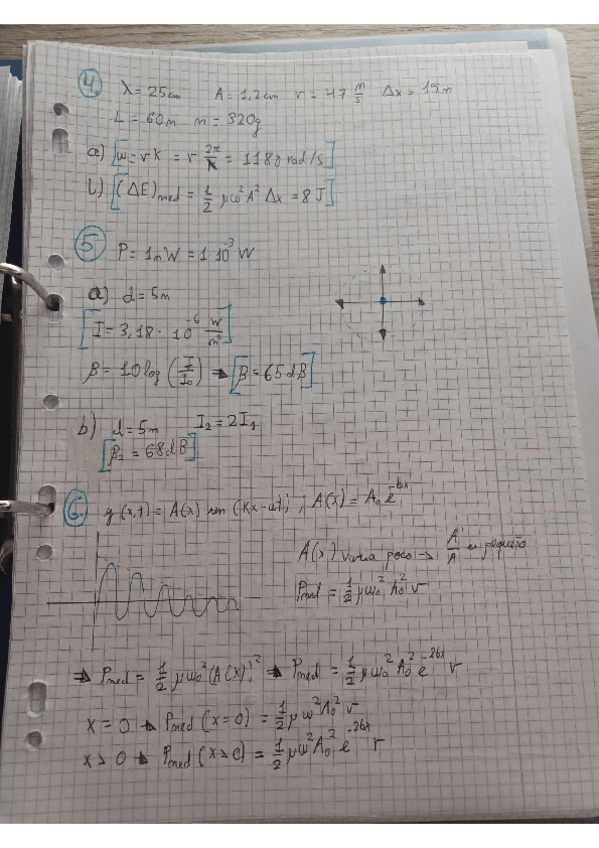 4. λ = 25cm A = 1,2cm v = 47 m/s Δx = 15m
L = 60m m = 320g
a) [ω = vK = v 2π/λ = 1180 rad/s]
b) [(ΔE)med = 1/2 μω²A² Δx = 8 J]
5. P = 1mW = 1·10⁻³ W
a) d = 5m
[I = 3,18·10⁻⁶ W/m²]
β = 10 log (I/I₀) → [β = 65 dB]
b) d = 5m I₂ = 2I₁
[β₂ = 68 dB]
6. y(x,t) = A(x) sen (Kx - ωt) ; A(x) = A₀ e^-bx
A(x) varia poco → A'/A es pequeño
Pmed = 1/2 μω₀² A₀² v
⇒ Pmed = 1/2 μω₀² (A(x))² v → Pmed = 1/2 μω₀² A₀² e^-2bx v
x = 0 → Pmed (x=0) = 1/2 μω² A₀² v
x > 0 → Pmed (x>0) = 1/2 μω² A₀² e^-2bx v